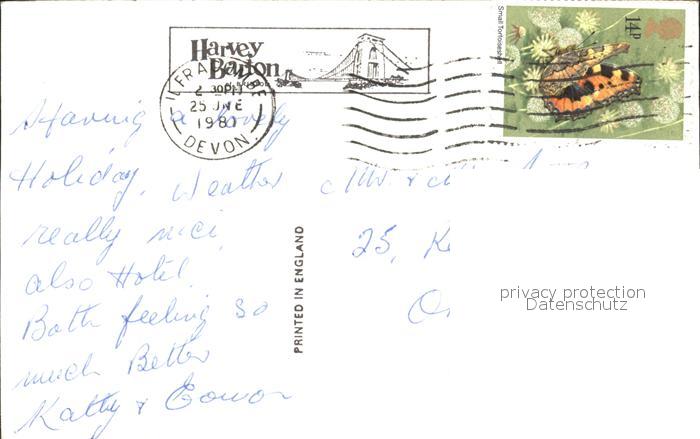 Harvey
Barton
ILFRACOMBE
2 30PM
25 JNE
1981
DEVON
Small Tortoiseshell
14P
Having a lovely
Holiday. Weather
really nice
also Hotel.
Both feeling so
much Better
Kathy &
Mr &
25, K
PRINTED IN ENGLAND
privacy protection
Datenschutz